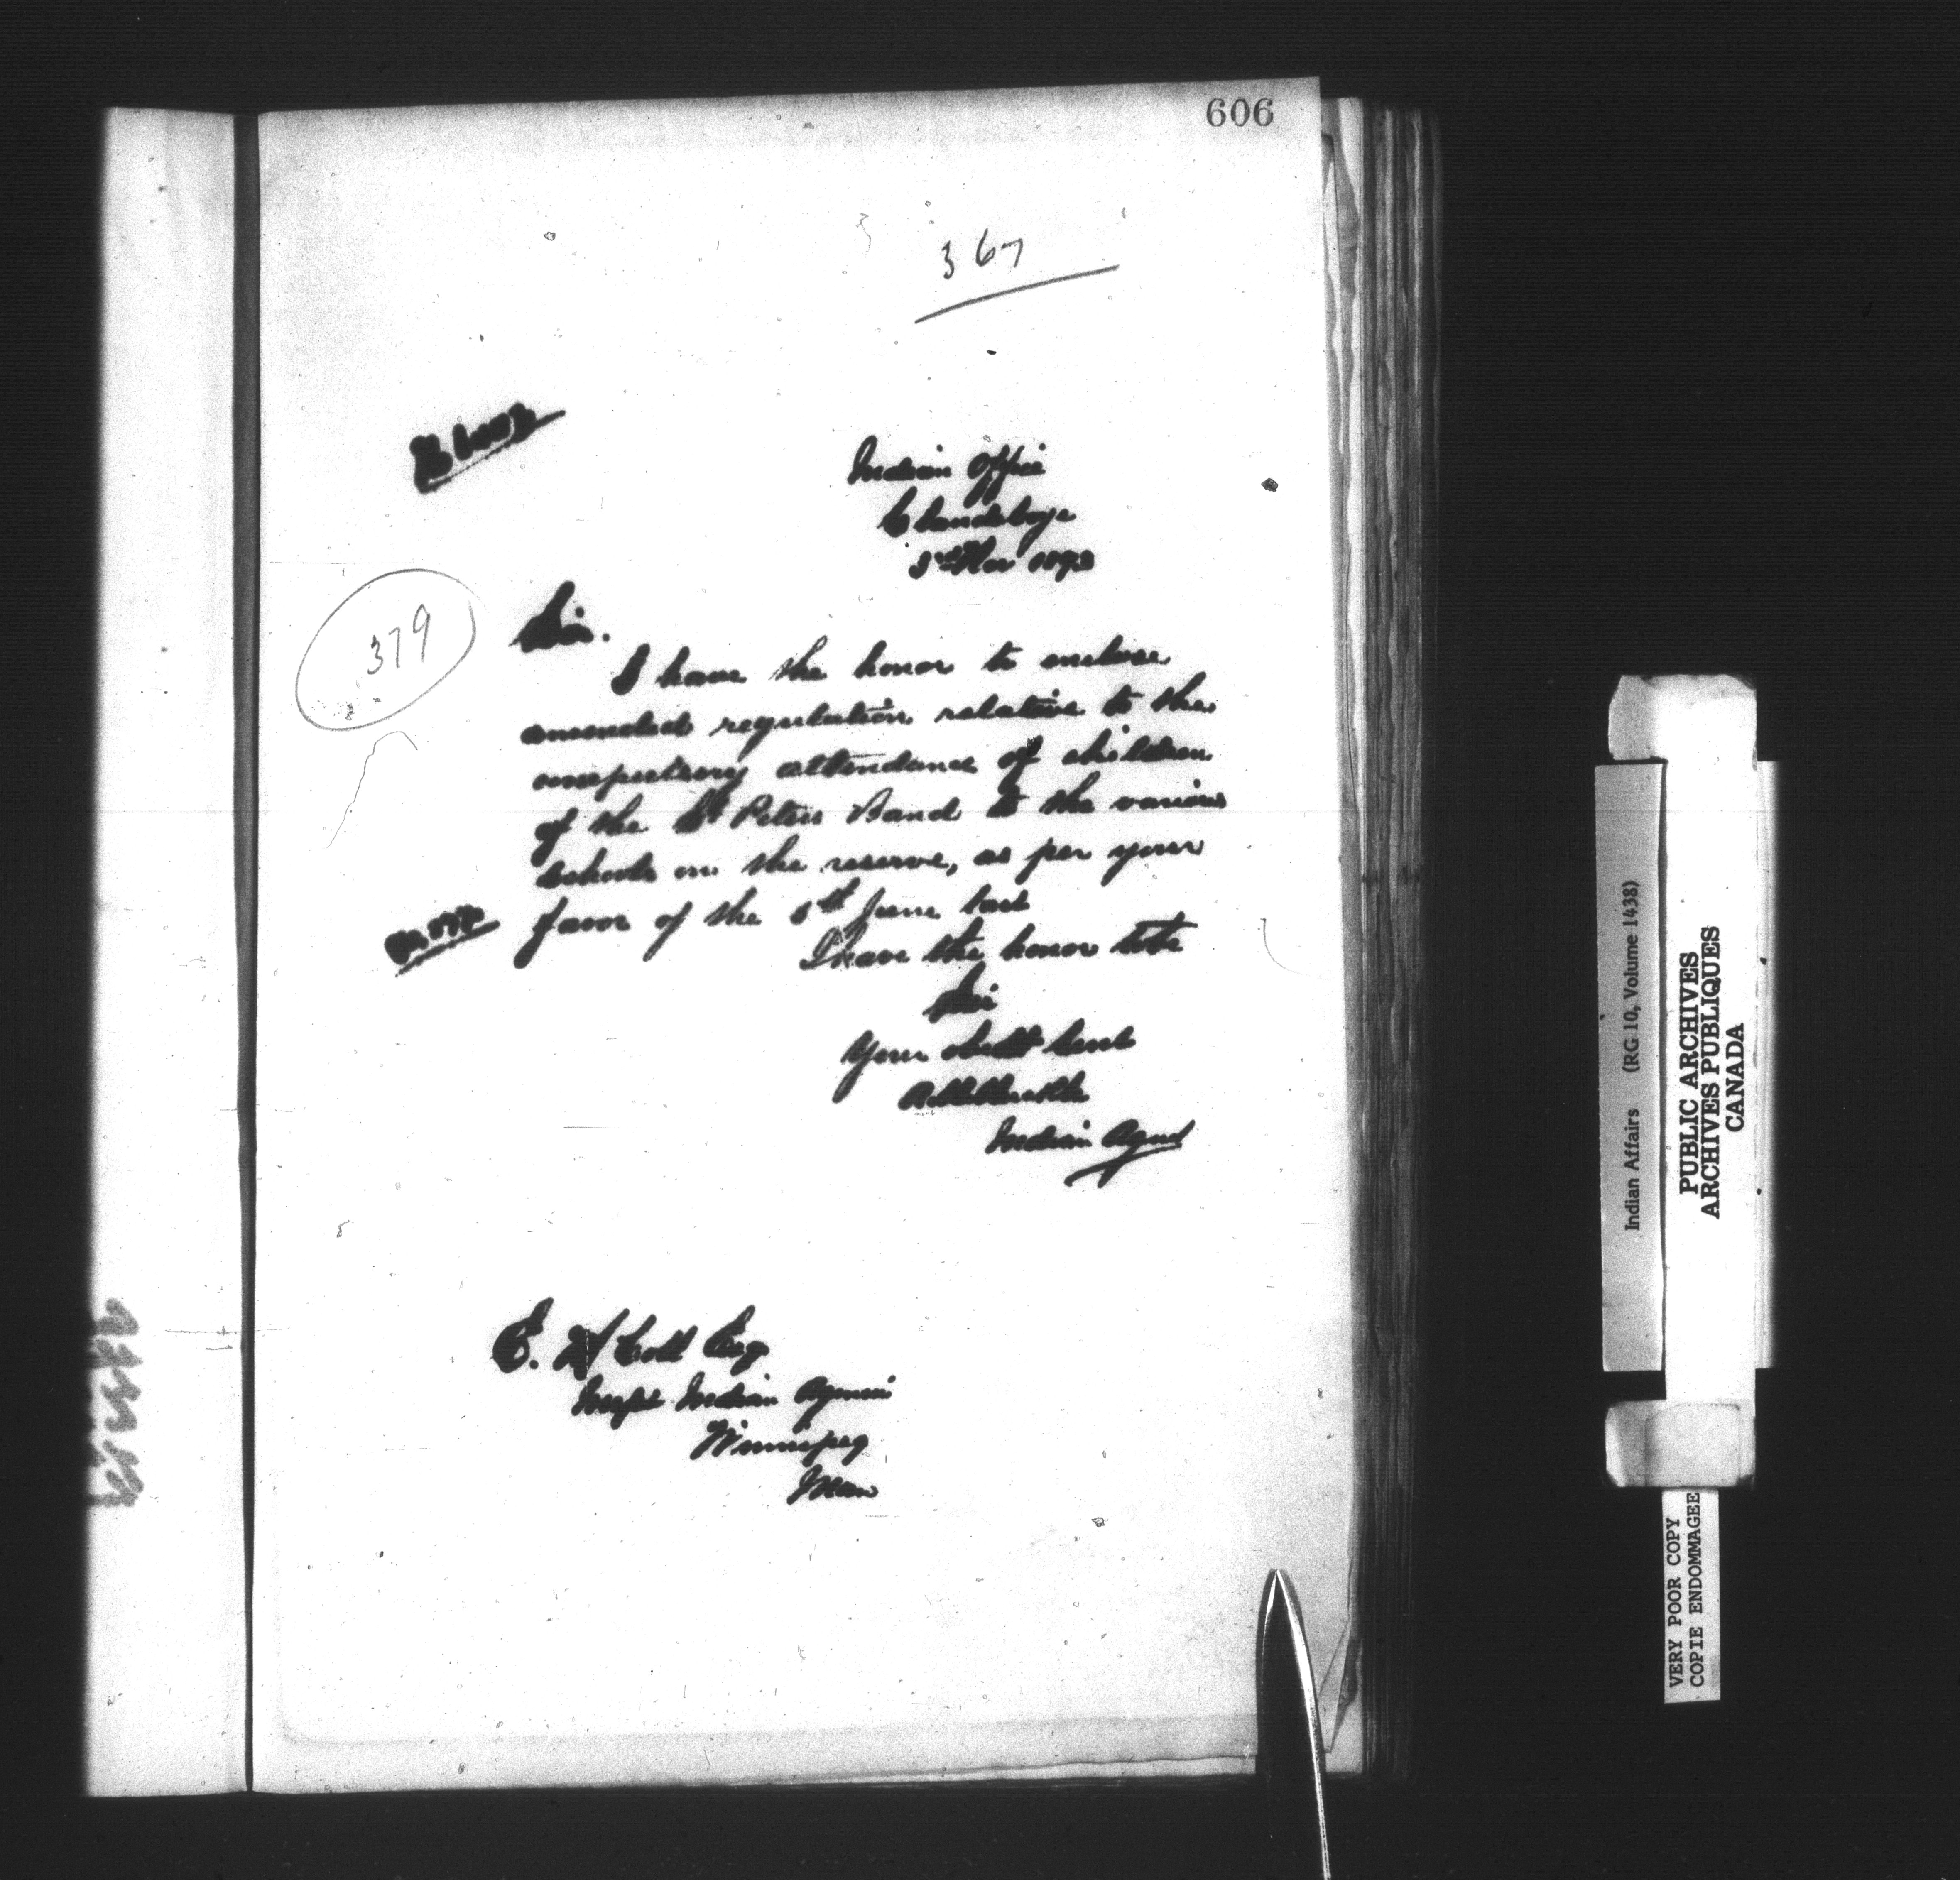 606
367
Indian Office
Clandeboye
3rd Nov 1893
379
Sir.
I have the honor to enclose
amended regulation relative to the
compulsory attendance of children
of the St Peters Band to the various
schools on the reserve, as per your
favor of the 5th June last
I have the honor to be
Sir
Your obedt Servt
Indian Agent
E. McColl Esq
Inspt Indian Agencies
Winnipeg
Man
Indian Affairs (RG 10, Volume 1438)
PUBLIC ARCHIVES
ARCHIVES PUBLIQUES
CANADA
VERY POOR COPY
COPIE ENDOMMAGEE